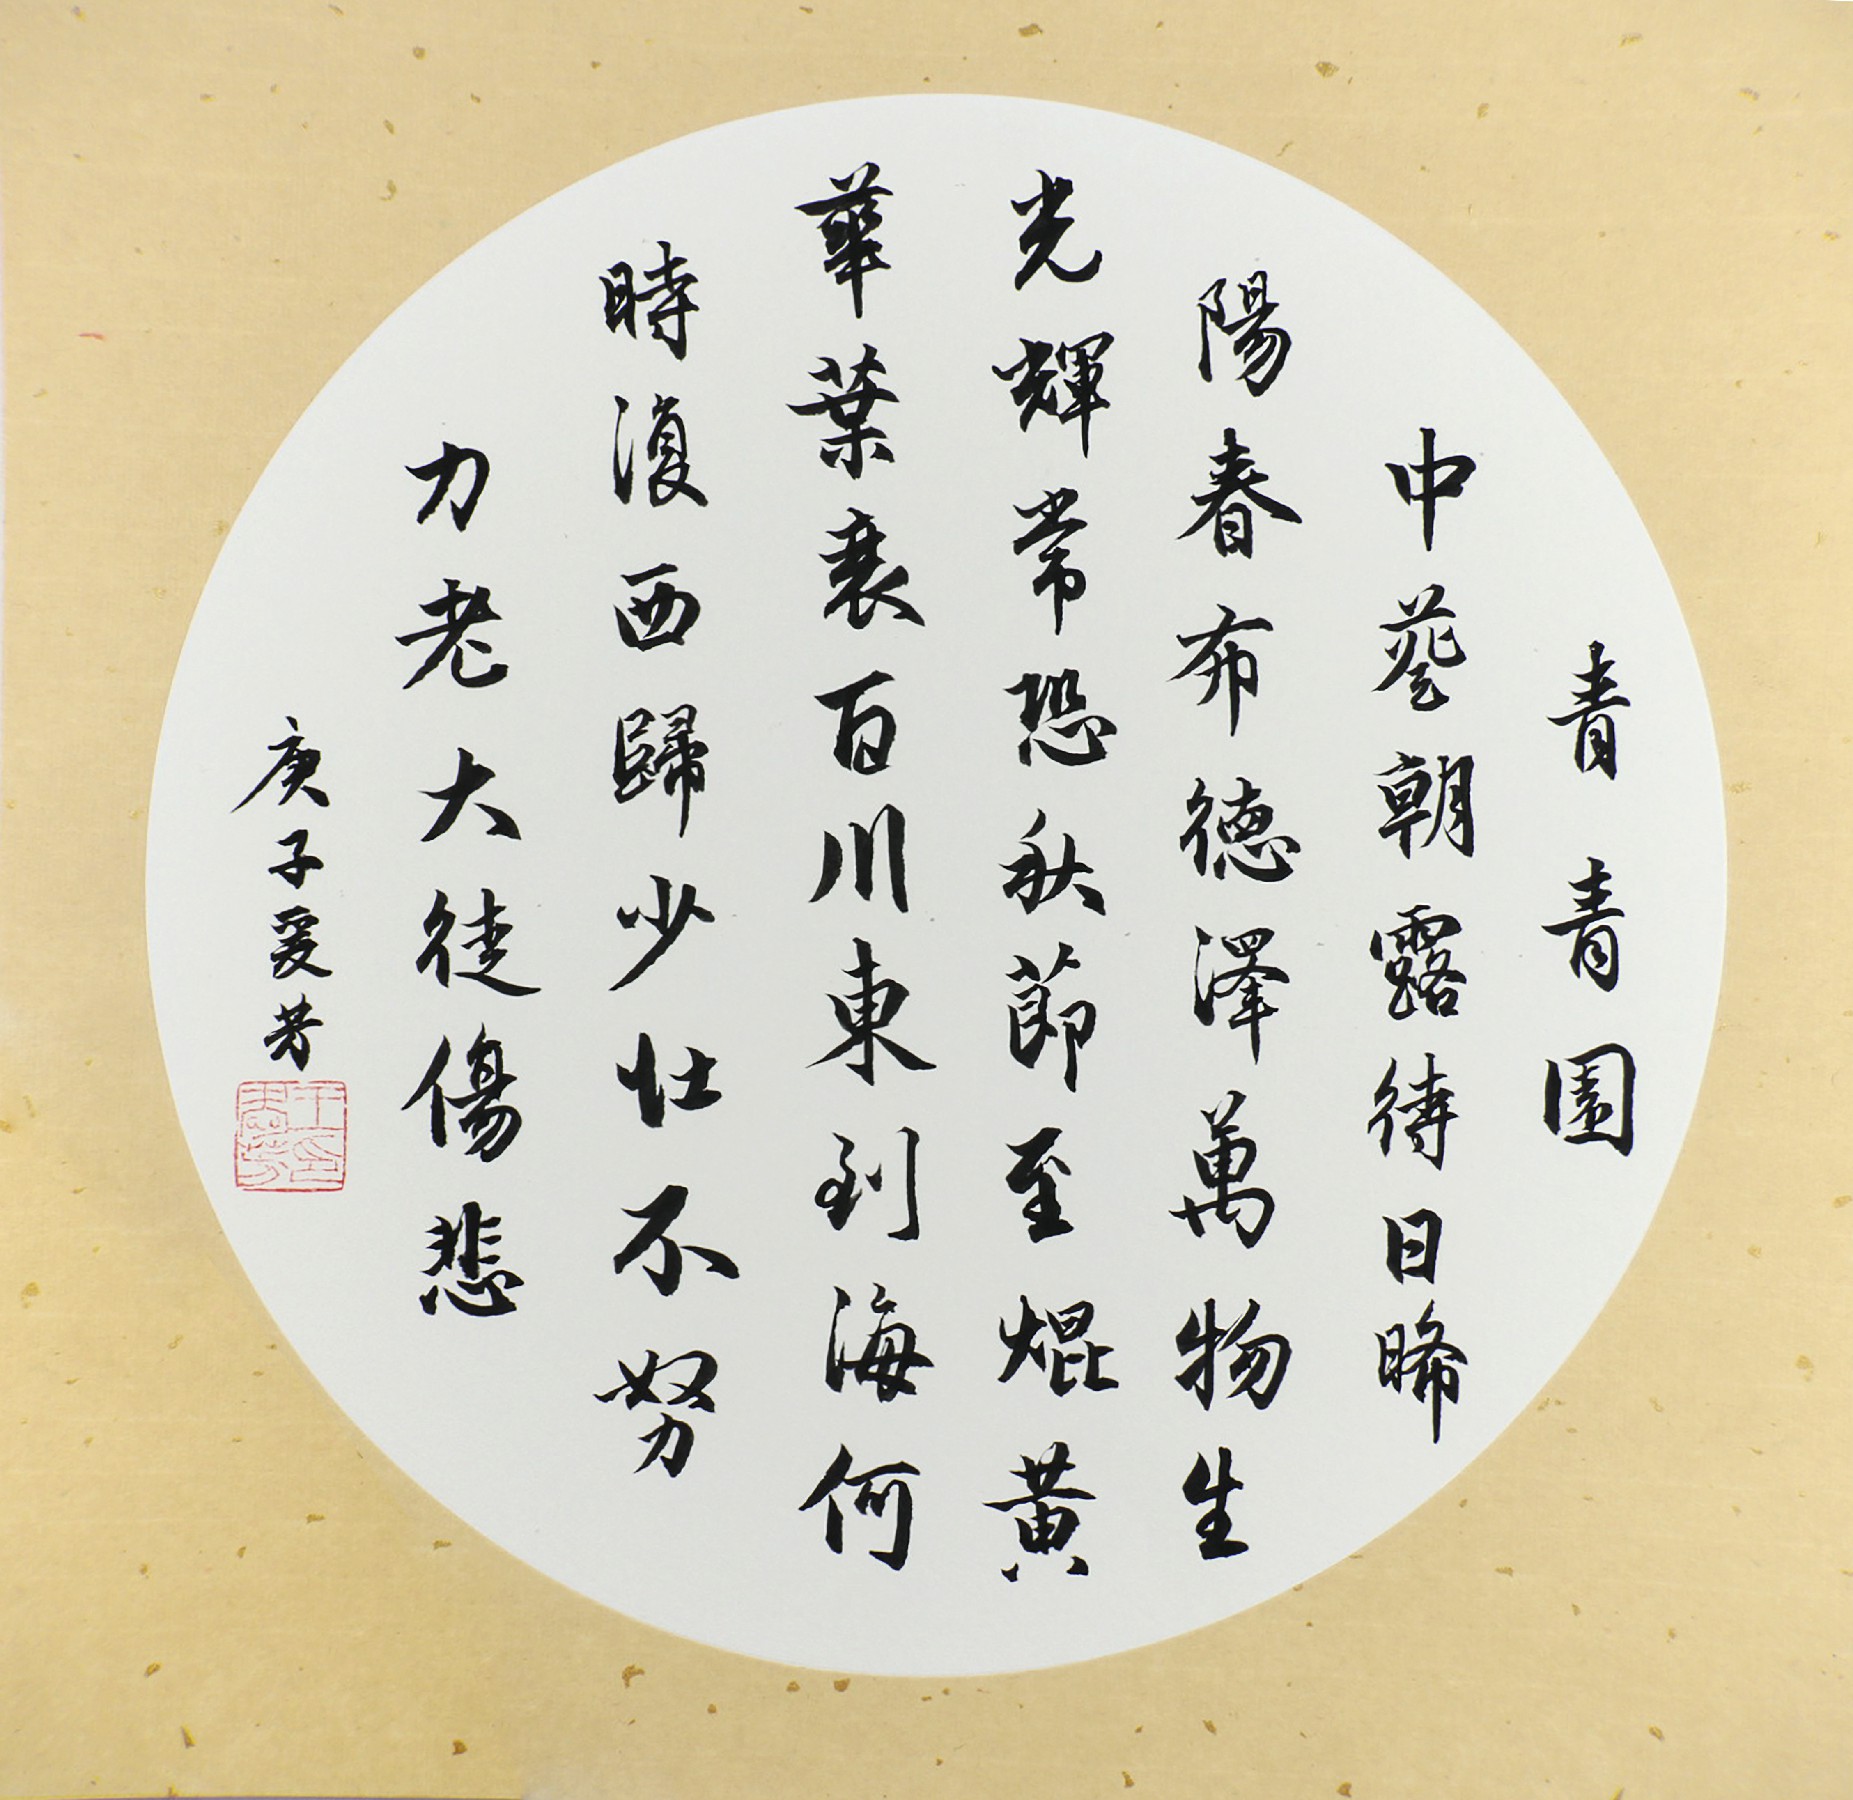 青青園
中葵朝露待日晞
陽春布德澤萬物生
光輝常恐秋節至焜黃
華葉衰百川東到海何
時復西歸少壯不努
力老大徒傷悲
庚子爱芳